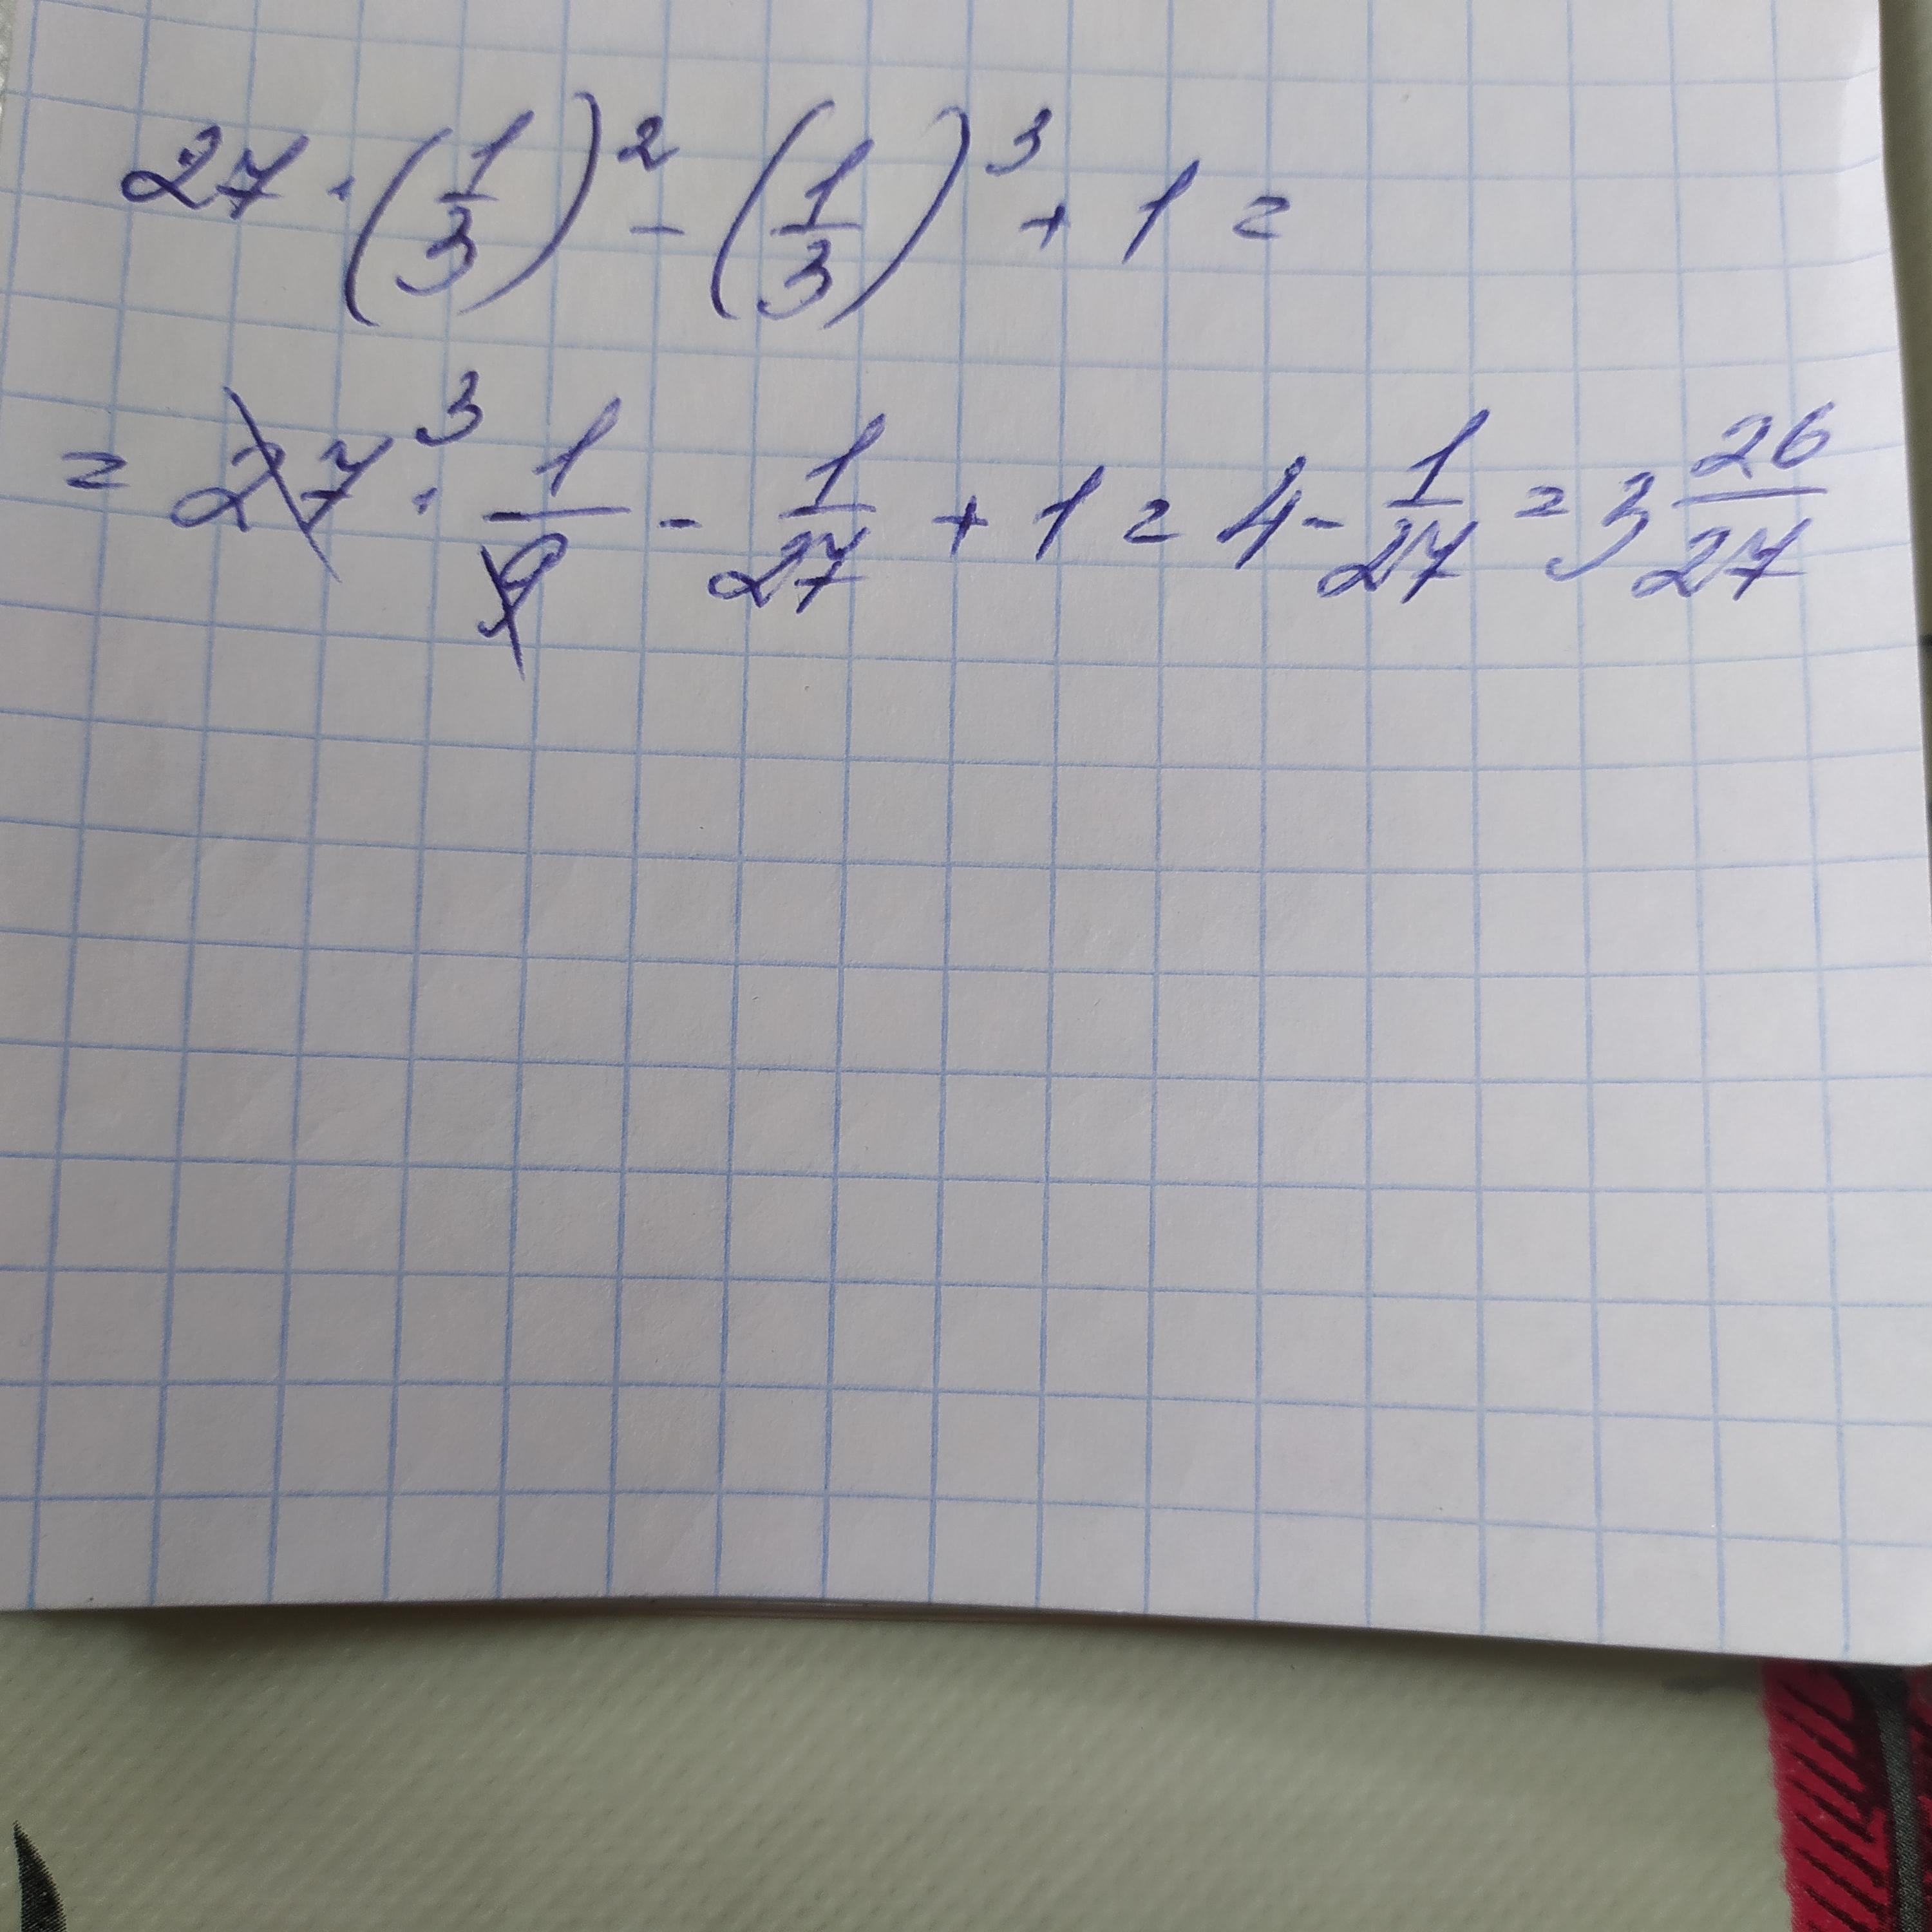 27 · (1/3)² - (1/3)³ + 1 =
= 27³ · 1/9 - 1/27 + 1 = 4 - 1/27 = 3 26/27